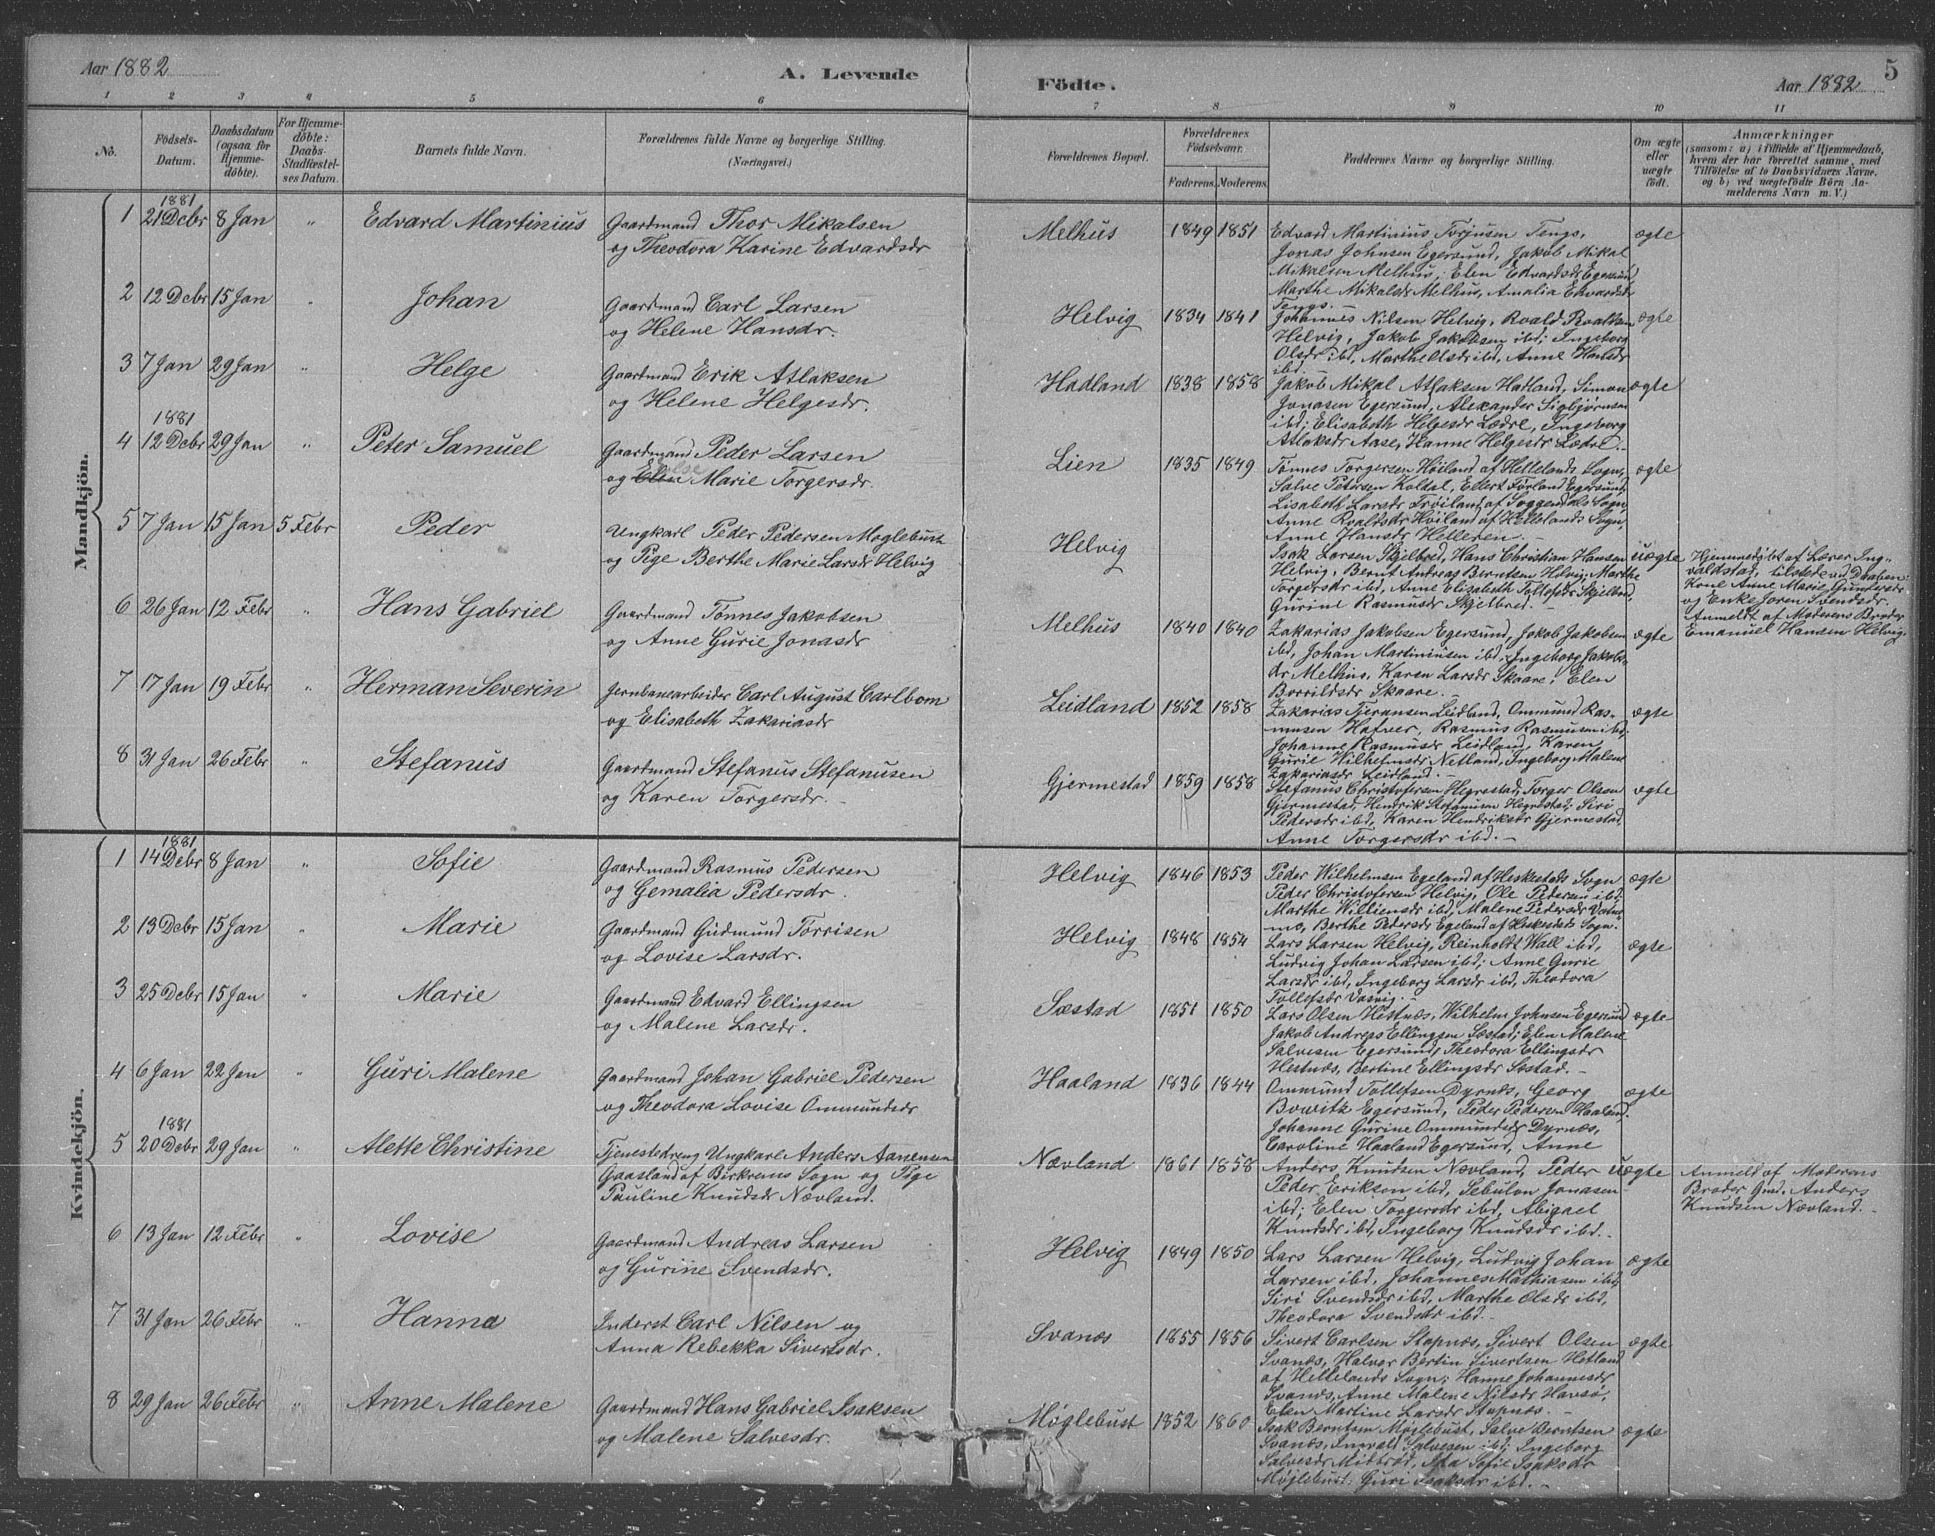 Aar 1882
A. Levende
Födte.
Aar 1882
5
1 2 3 4 5 6 7 8 9 10 11
No.
Födsels-
Datum.
Daabsdatum
(ogsaa for
Hjemme-
döbte).
For Hjemme-
döbte:
Daabs-
Stadfæstel-
ses Datum.
Barnets fulde Navn.
Forældrenes fulde Navne og borgerlige Stilling.
(Næringsvei.)
Forældrenes Bopæl.
Forældrenes
Födselsaar.
Faderens. Moderens.
Faddernes Navne og borgerlige Stilling.
Om ægte
eller
uægte
födt.
Anmærkninger
(saasom: a) i Tilfælde af Hjemmedaab,
hvem der har forrettet samme, med
Tilföielse af to Daabsvidners Navne,
og b) ved uægtefödte Börn An-
melderens Navn m. V.)
Mandkjön.
1881
1 21 Decbr 8 Jan " Edvard Martinius
Gaardmand Thor Mikalsen
og Theodora Karine Edvardsdr
Melhus 1849 1851
Edvard Martinius Torjusen Tengs,
Jonas Johnsen Egersund, Jakob Mikal
Mikalsen Melhus; Elen Edvardsdr Egersund
Marthe Mikalsdr Melhus, Amalia Edvardsdr
Tengs.
ægte
2 12 Decbr 15 Jan " Johan
Gaardmand Carl Larsen
og Helene Hansdr.
Helvig 1834 1841
Johannes Nilsen Helvig, Roald Roaldsen
Helvig, Jakob Jakobsen ibd; Ingeborg
Olsdr ibd, Marthe Olsdr ibd, Anne Hansdr
ibd.
ægte
3 7 Jan 29 Jan " Helge
Gaardmand Erik Atlaksen
og Helene Helgesdr.
Hadland 1838 1858
Jakob Mikal Atlaksen Hadland, Simon
Jonasen Egersund, Alexander Sigbjørnsen
ibd; Elisabeth Helgesdr Lædre, Ingeborg
Atlaksdr Aase, Hanne Helgesdr Lædre.
ægte
1881
4 12 Decbr 29 Jan " Peter Samuel
Gaardmand Peder Larsen
og Elen Else Marie Torgersdr.
Lien 1835 1849
Tønnes Torgersen Høiland af Hellelands Sogn,
Salve Petersen Koldal, Edert Førland Egersund;
Lisabeth Larsdr Frøiland af Soggendals Sogn,
Anne Roaldsdr Høiland af Hellelands Sogn,
Anne Hansdr Helleren.
ægte
5 7 Jan 15 Jan 5 Febr Peder
Ungkarl Peder Pedersen Møglebust
og Pige Berthe Marie Larsdr Helvig
Helvig
Isak Larsen Skjelbred, Hans Christian Hansen
Helvig, Bernt Andreas Berntsen Helvig; Marthe
Torgersdr ibd, Anne Elizabeth Tollefsdr Skjelbred,
Gurine Rasmusdr Skjelbred.
uægte
Hjemmedøbt af Lærer Ing-
valdstad, tilstede ved Daaben:
Kone Anne Marie Gundersdr
og Enke Joren Svendsdr.
Anmeldt af Moderens Broder
Emanuel Hansen Helvig.
6 26 Jan 12 Febr " Hans Gabriel
Gaardmand Tønnes Jakobsen
og Anne Gurie Jonasdr
Melhus 1840 1840
Zakarias Jakobsen Egersund, Jakob Jakobsen
ibd, Johan Martiniusen ibd; Ingeborg Jakobs-
dr Melhus, Karen Larsdr Skaare, Elen
Borrildsdr Skaare.
ægte
7 17 Jan 19 Febr " Herman Severin
Jernbanearbeider Carl August Carlbom
og Elisabeth Zakariasdr
Leidland 1852 1858
Zakarias Tjeransen Leidland, Ommund Ras-
mussen Hafver, Rasmus Rasmusen ibd;
Johanne Rasmusdr Leidland, Karen
Gurie Wilhelmsdr Netland, Ingeborg Malene
Zakariasdr Leidland.
ægte
8 31 Jan 26 Febr " Stefanus
Gaardmand Stefanus Stefanusen
og Karen Torgersdr.
Gjermestad 1859 1858
Stefanus Christofersen Hegrestad, Torger Olsen
Gjermestad, Hendrik Stefanusen Hegrestad; Siri
Pedersdr ibd, Karen Hendriksdr Gjermestad,
Anne Torgersdr ibd.
ægte
Kvindekjön.
1881
1 14 Decbr 8 Jan " Sofie
Gaardmand Rasmus Pedersen
og Gemalia Pedersdr.
Helvig 1846 1853
Peder Wilhelmsen Egeland af Heskestads Sogn
Peder Christofersen Helvig, Ole Pedersen ibd;
Marthe Williensdr ibd, Malene Pedersdr Vatne-
mo, Berthe Pedersdr Egeland af Heskestads Sogn.
ægte
2 13 Decbr 15 Jan " Marie
Gaardmand Gudmund Torrisen
og Lovise Larsdr.
Helvig 1848 1854
Lars Larsen Helvig, Reinholdt Wall ibd,
Ludvig Johan Larsen ibd; Anne Gurie
Larsdr ibd, Ingeborg Larsdr ibd, Theodora
Tollefsdr Vasvig.
ægte
3 25 Decbr 15 Jan " Marie
Gaardmand Edvard Ellingsen
og Malene Larsdr.
Sæstad 1851 1850
Lars Olsen Hestnæs, Wilhelm Johnsen Egersund
Jakob Andreas Ellingsen Sæstad; Elen Malene
Salvesen Egersund, Theodora Ellingsdr
Hestnæs, Bertine Ellingsdr Sæstad.
ægte
4 6 Jan 22 Jan " Guri Malene
Gaardmand Johan Gabriel Pedersen
og Theodora Lovise Ommundsdr
Haaland 1836 1844
Ommund Tollefsen Dyrnæs, Georg
Bowitz Egersund, Peder Pedersen Haaland;
Johanne Gurine Ommundsdr Dyrnæs,
Caroline Haaland Egersund, Anne
ægte
1881
5 20 Decbr 29 Jan " Alette Christine
Tjenestedreng Ungkarl Anders Aanensen
Gaasland af Birkrems Sogn og Pige
Pauline Knudsdr Nævland.
Nævland 1861 1858
Anders Knudsen Nævland, Peder
Peder Eriksen ibd, Sebulon Jonasen
ibd; Elen Torgersdr ibd, Abigael
Knudsdr ibd, Ingeborg Knudsdr ibd.
uægte
Anmeldt af Moderens
Broder Gmd. Anders
Knudsen Nævland.
6 13 Jan 12 Febr " Lovise
Gaardmand Andreas Larsen
og Gurine Svendsdr.
Helvig 1849 1850
Lars Larsen Helvig, Ludvig Johan
Larsen ibd, Johannes Mathiasen ibd;
Siri Svendsdr ibd, Marthe Olsdr ibd,
Theodora Svendsdr ibd.
ægte
7 31 Jan 26 Febr " Hanna
Inderst Carl Nilsen og
Anna Rebekka Sivertsdr.
Svanæs 1855 1856
Sivert Carlsen Stapnæs, Sivert Olsen
Svanæs, Halvor Bertin Sivertsen Hetland
af Hellelands Sogn; Hanne Johannesdr
Svanæs, Anne Malene Nilsdr Havsø,
Elen Martine Larsdr Stapnæs.
ægte
8 29 Jan 26 Febr " Anne Malene
Gaardmand Hans Gabriel Isaksen
og Malene Salvesdr.
Møglebust 1852 1860
Isak Berntsen Møglebust, Salve Berntsen
Svanæs, Ingvald Salvesen ibd; Ingeborg
Salvesdr Midbrød, Ida Sofie Isaksdr
Møglebust, Guri Isaksdr ibd.
ægte